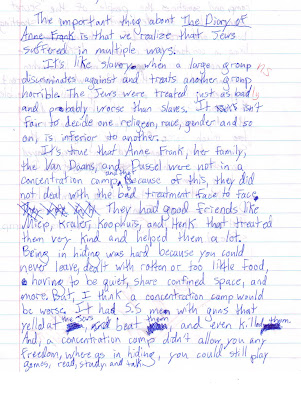 The important thing about The Diary of
Anne Frank is that we realize that Jews
suffered in multiple ways.
It's like slavery when a large group
discriminates against and treats another group
horrible. The Jews were treated just as bad
and probably worse than slaves. It isn't
fair to decide one religeon, race, gender and so
on, is inferior to another.
It's true that Anne Frank, her family,
the Van Daans, and Dussel were not in a
concentration camp and that because of this, they did
not deal with the bad treatment face to face.
They had good friends like
Miep, Kraler, Koophuis, and Henk that treated
them very kind and helped them a lot.
Being in hiding was hard because you could
never leave, dealt with rotten or too little food,
having to be quiet, share confined space, and
more. But, I think a concentration camp would
be worse. It had S.S men with guns that
yelled at the Jews, beat them, and even killed them.
And, a concentration camp didn't allow you any
freedom, where as in hiding, you could still play
games, read, study and talk.